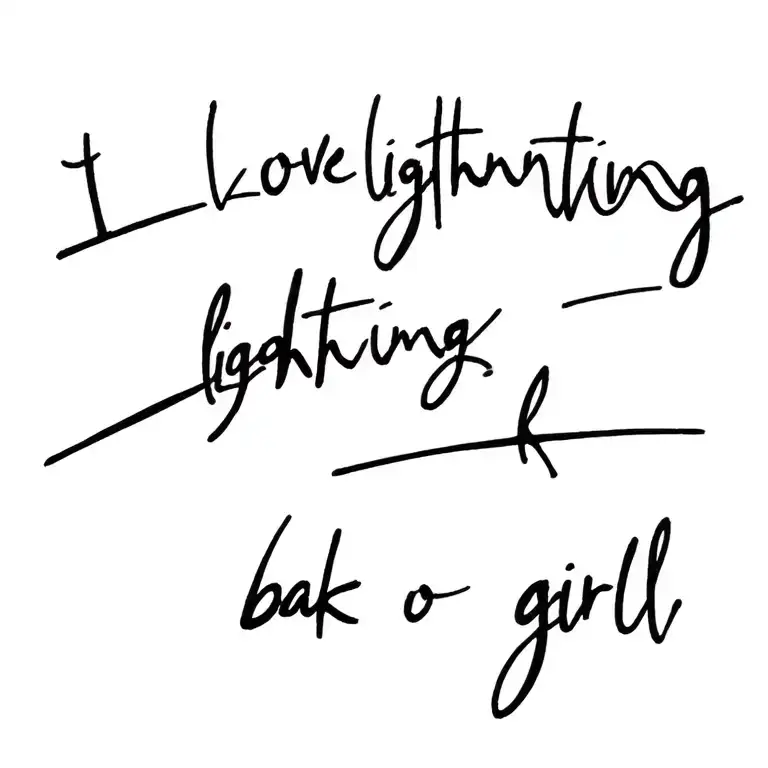 I love ligthnnting
lighting
k
bak o girll